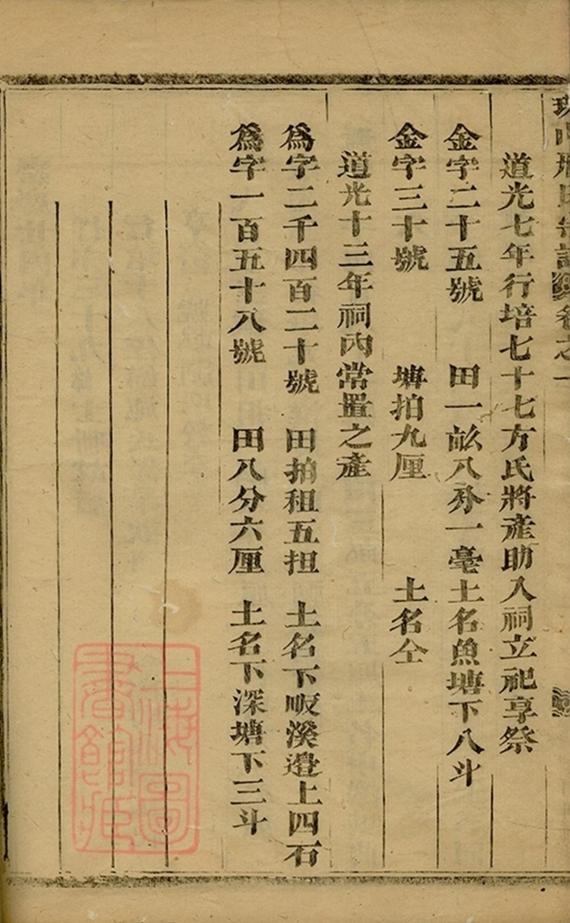 氏宗譜 卷之一
道光七年行培七十七方氏將產助入祠立祀享祭
金字二十五號 田一畝八分一毫土名魚塘下八斗
金字三十號 塘拍九厘 土名仝
道光十三年祠內常置之產
為字二千四百二十號 田拍租五担 土名下畈溪邉上四石
為字一百五十八號 田八分六厘 土名下深塘下三斗
上海圖書館藏